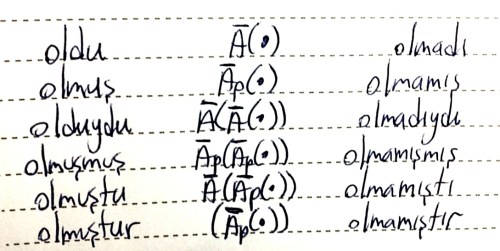 oldu Ā(•) olmadı
olmuş Āp(•) olmamış
olduydu Ā(Ā(•)) olmadıydı
olmuşmuş Āp(Āp(•)) olmamışmış
olmuştu Ā(Āp(•)) olmamıştı
olmuştur (Āp(•)) olmamıştır